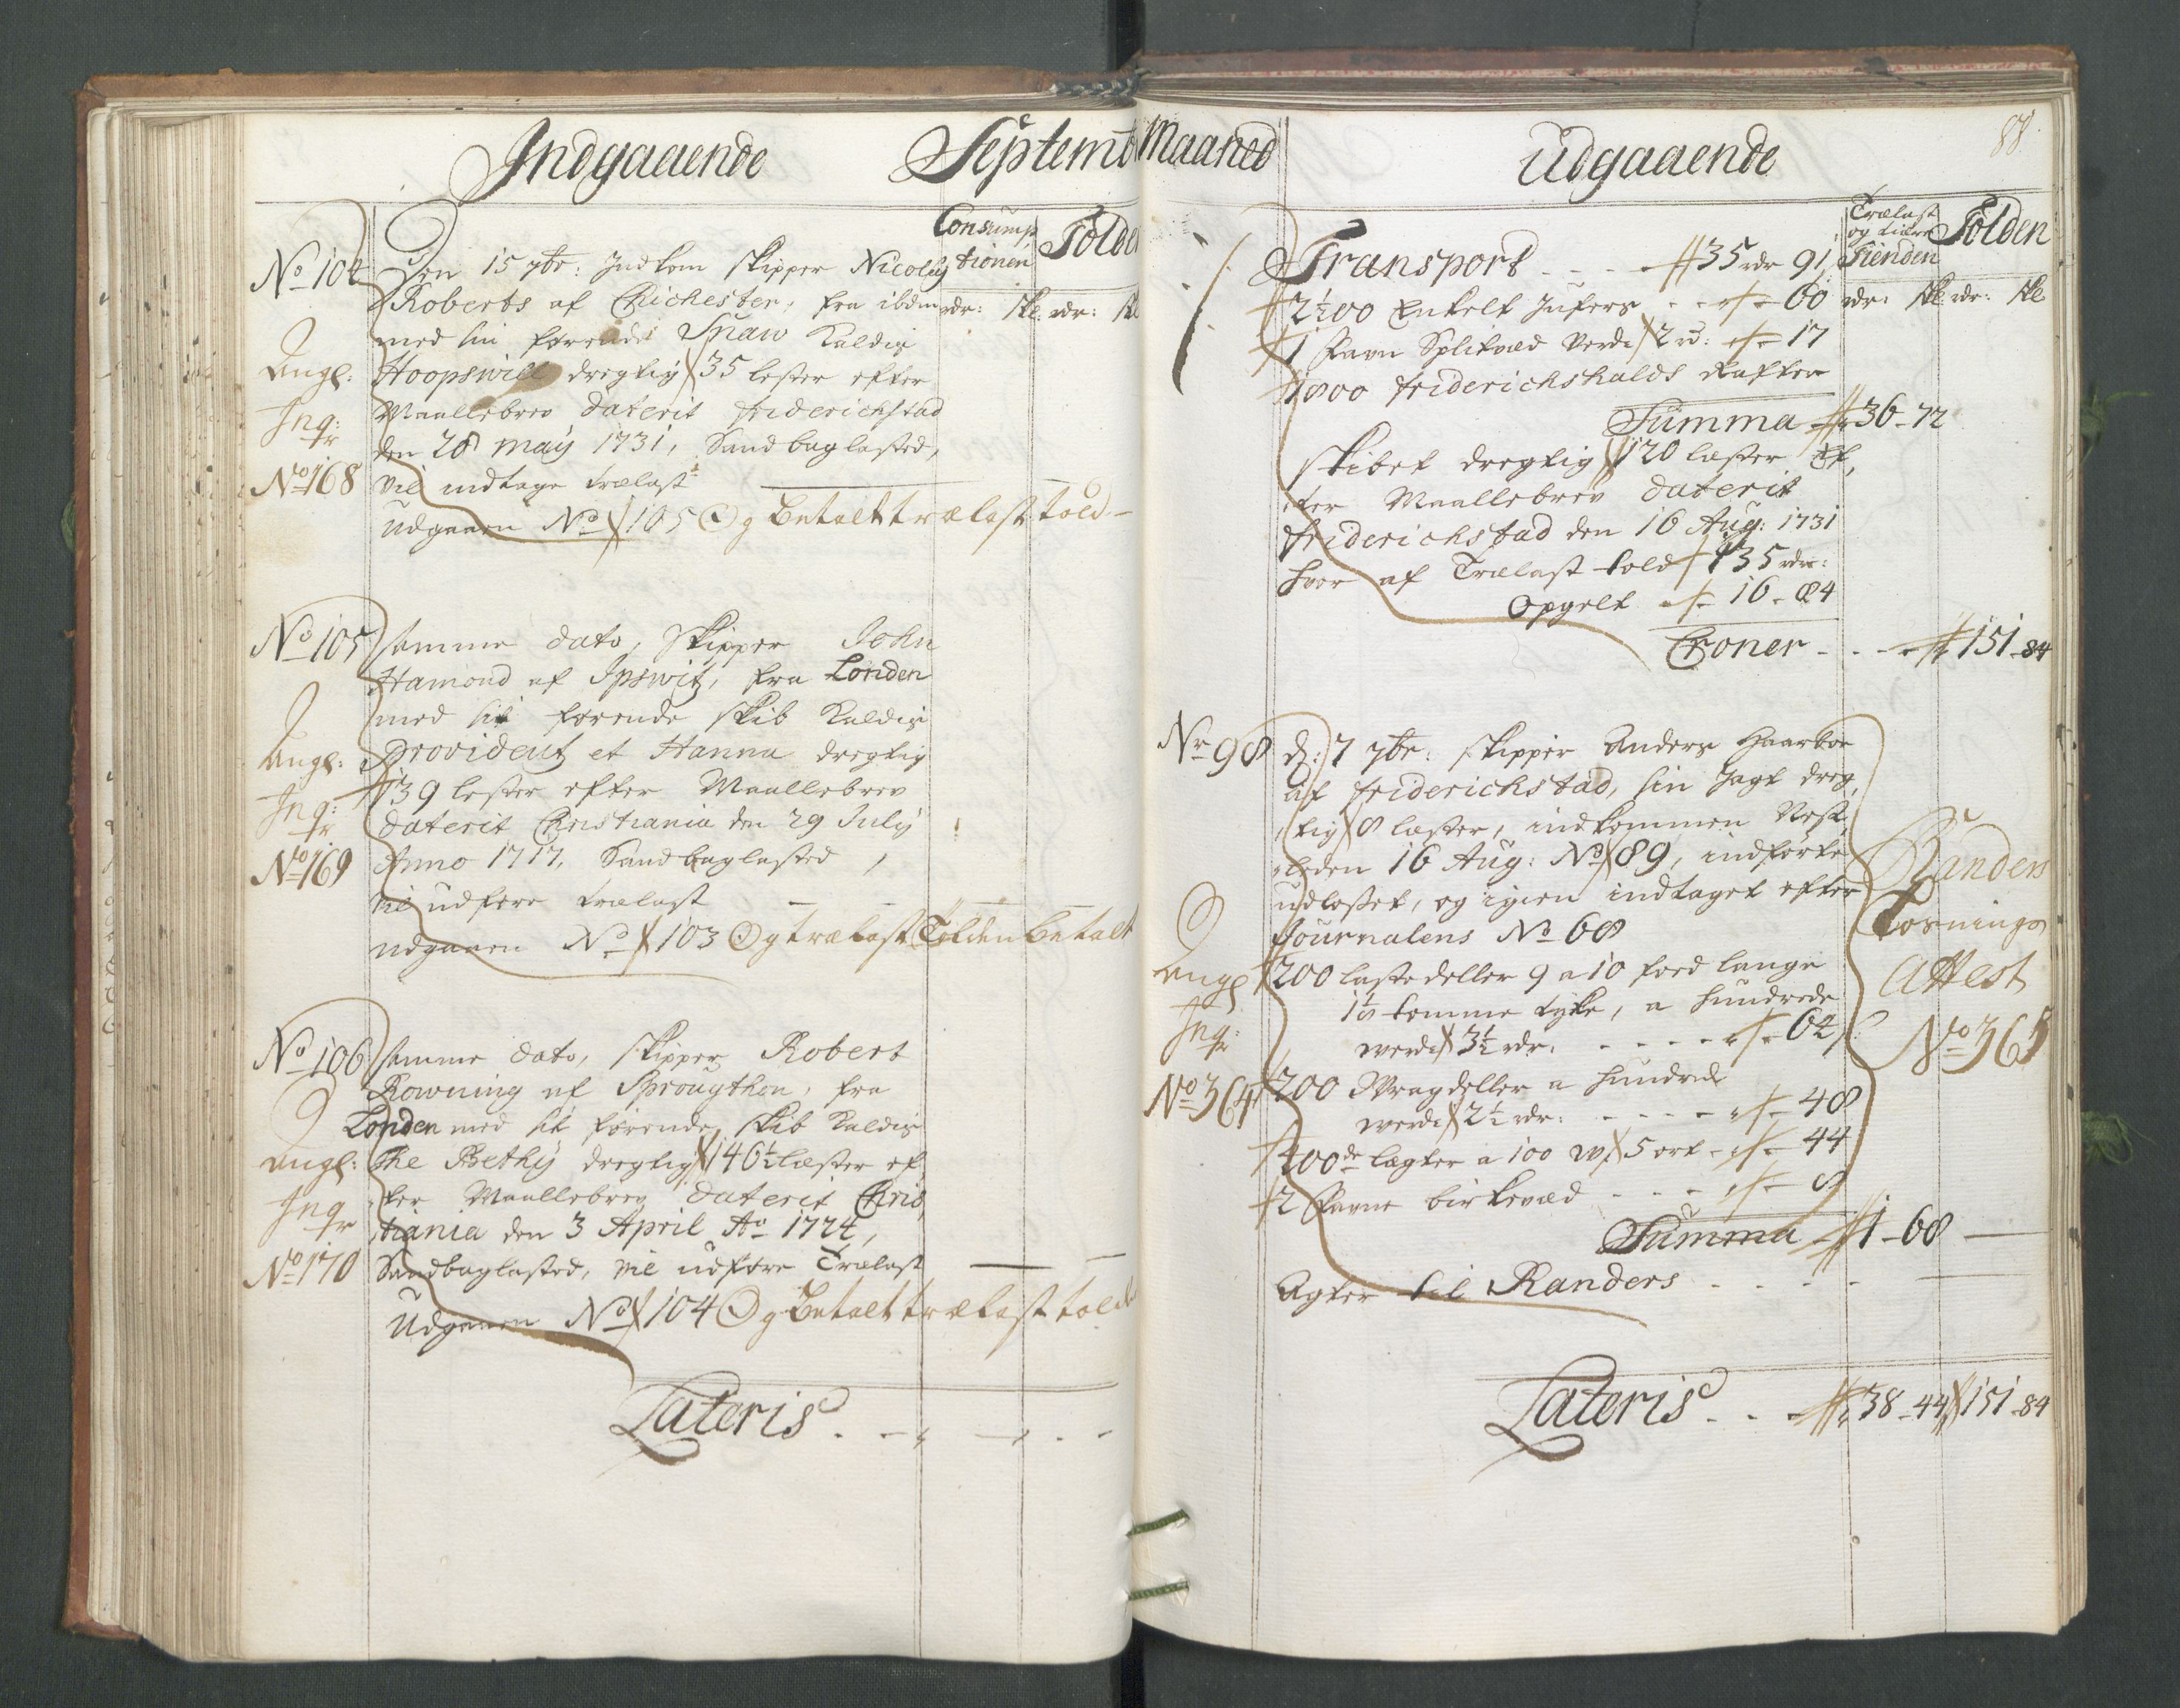 Indgaaende Septemb
Consump
tionen
Tolde
rdr: skl. rdr: sk
No 104
Den 15 7br: Indkom skipper Nicolaj
Roberts af Chichester, fra ibdm
med sin førende Snaw Kaldis
Hoopswill dregtig 35 lester efter
Maallebrev daterit friderichstad
den 28 May 1731, Sandbaglasted,
vil indtage trælast
Udgaaen No 105 Og betalt trælast told
Angl:
Inq:
No 168
No 105
samme dato, skipper John
Hamond af Ipswitz, fra Londen
med sit førende skib Kaldis
Provident et Hanna dregtig
139 lester efter Maallebrev
daterit Christiania den 29 July
Anno 1717, Sandbaglasted,
vil udføre trælast
udgaaen No 103 Og trælast Tolden betalt
Angl:
Inq:
No 169
No 106
samme dato, skipper Robert
Rowning af Sprougthon, fra
Londen med sit førende skib Kaldis
The Bethy dregtig 146½ læster ef,
ter Maallebrev daterit Chris,
tiania den 3 April Ao 1724,
Sandbaglasted, vil udføre Trælast
Udgaaen No 104 Og betalt trælast told
Angl:
Inq
No 170
Lateris
Maaned Udgaaende
88
Trælast
og tiære
Tienden
Tolden
rdr: skl rdr: skl
Transport - - - 35 rdr 91
2½00 Enkelt Jufers - - - 60
1 Favn Splitved verdi 2 rd: - 17
1800 friderichshalds Rafter
Summa 36-72
skibet dregtig 120 læster Ef,
ter Maallebrev daterit
friderichstad den 16 Aug: 1731
hvor af Trælast told 135 rdr:
Opgelt - 16-84
Croner - - - 151-84
Nr 98
d: 17 7br: skipper Anders Haarboe
af friderichstad, sin Jagt dreg,
tig 8 læster, indkommen Nest,
leden 16 Aug: No 89, indførte
udlosset, og igien indtaget efter
Journalens No 68
200 laste deller 9 a 10 foed lange
1½ tomme tyke, a hundrede
werdi 3½ rdr. - - - - 64
200 Vragdeller a hundrede
werdi 2½ rdr: - - - - 48
400de lægter a 100 w 5 ort - 44
2 Favne birkeved - - - 8
Summa 1-68
Agter til Randers - - - -
Angl
Inq:
No 364
Randers
Losnings
Attest
No 365
Lateris - - - 38-44 151-84